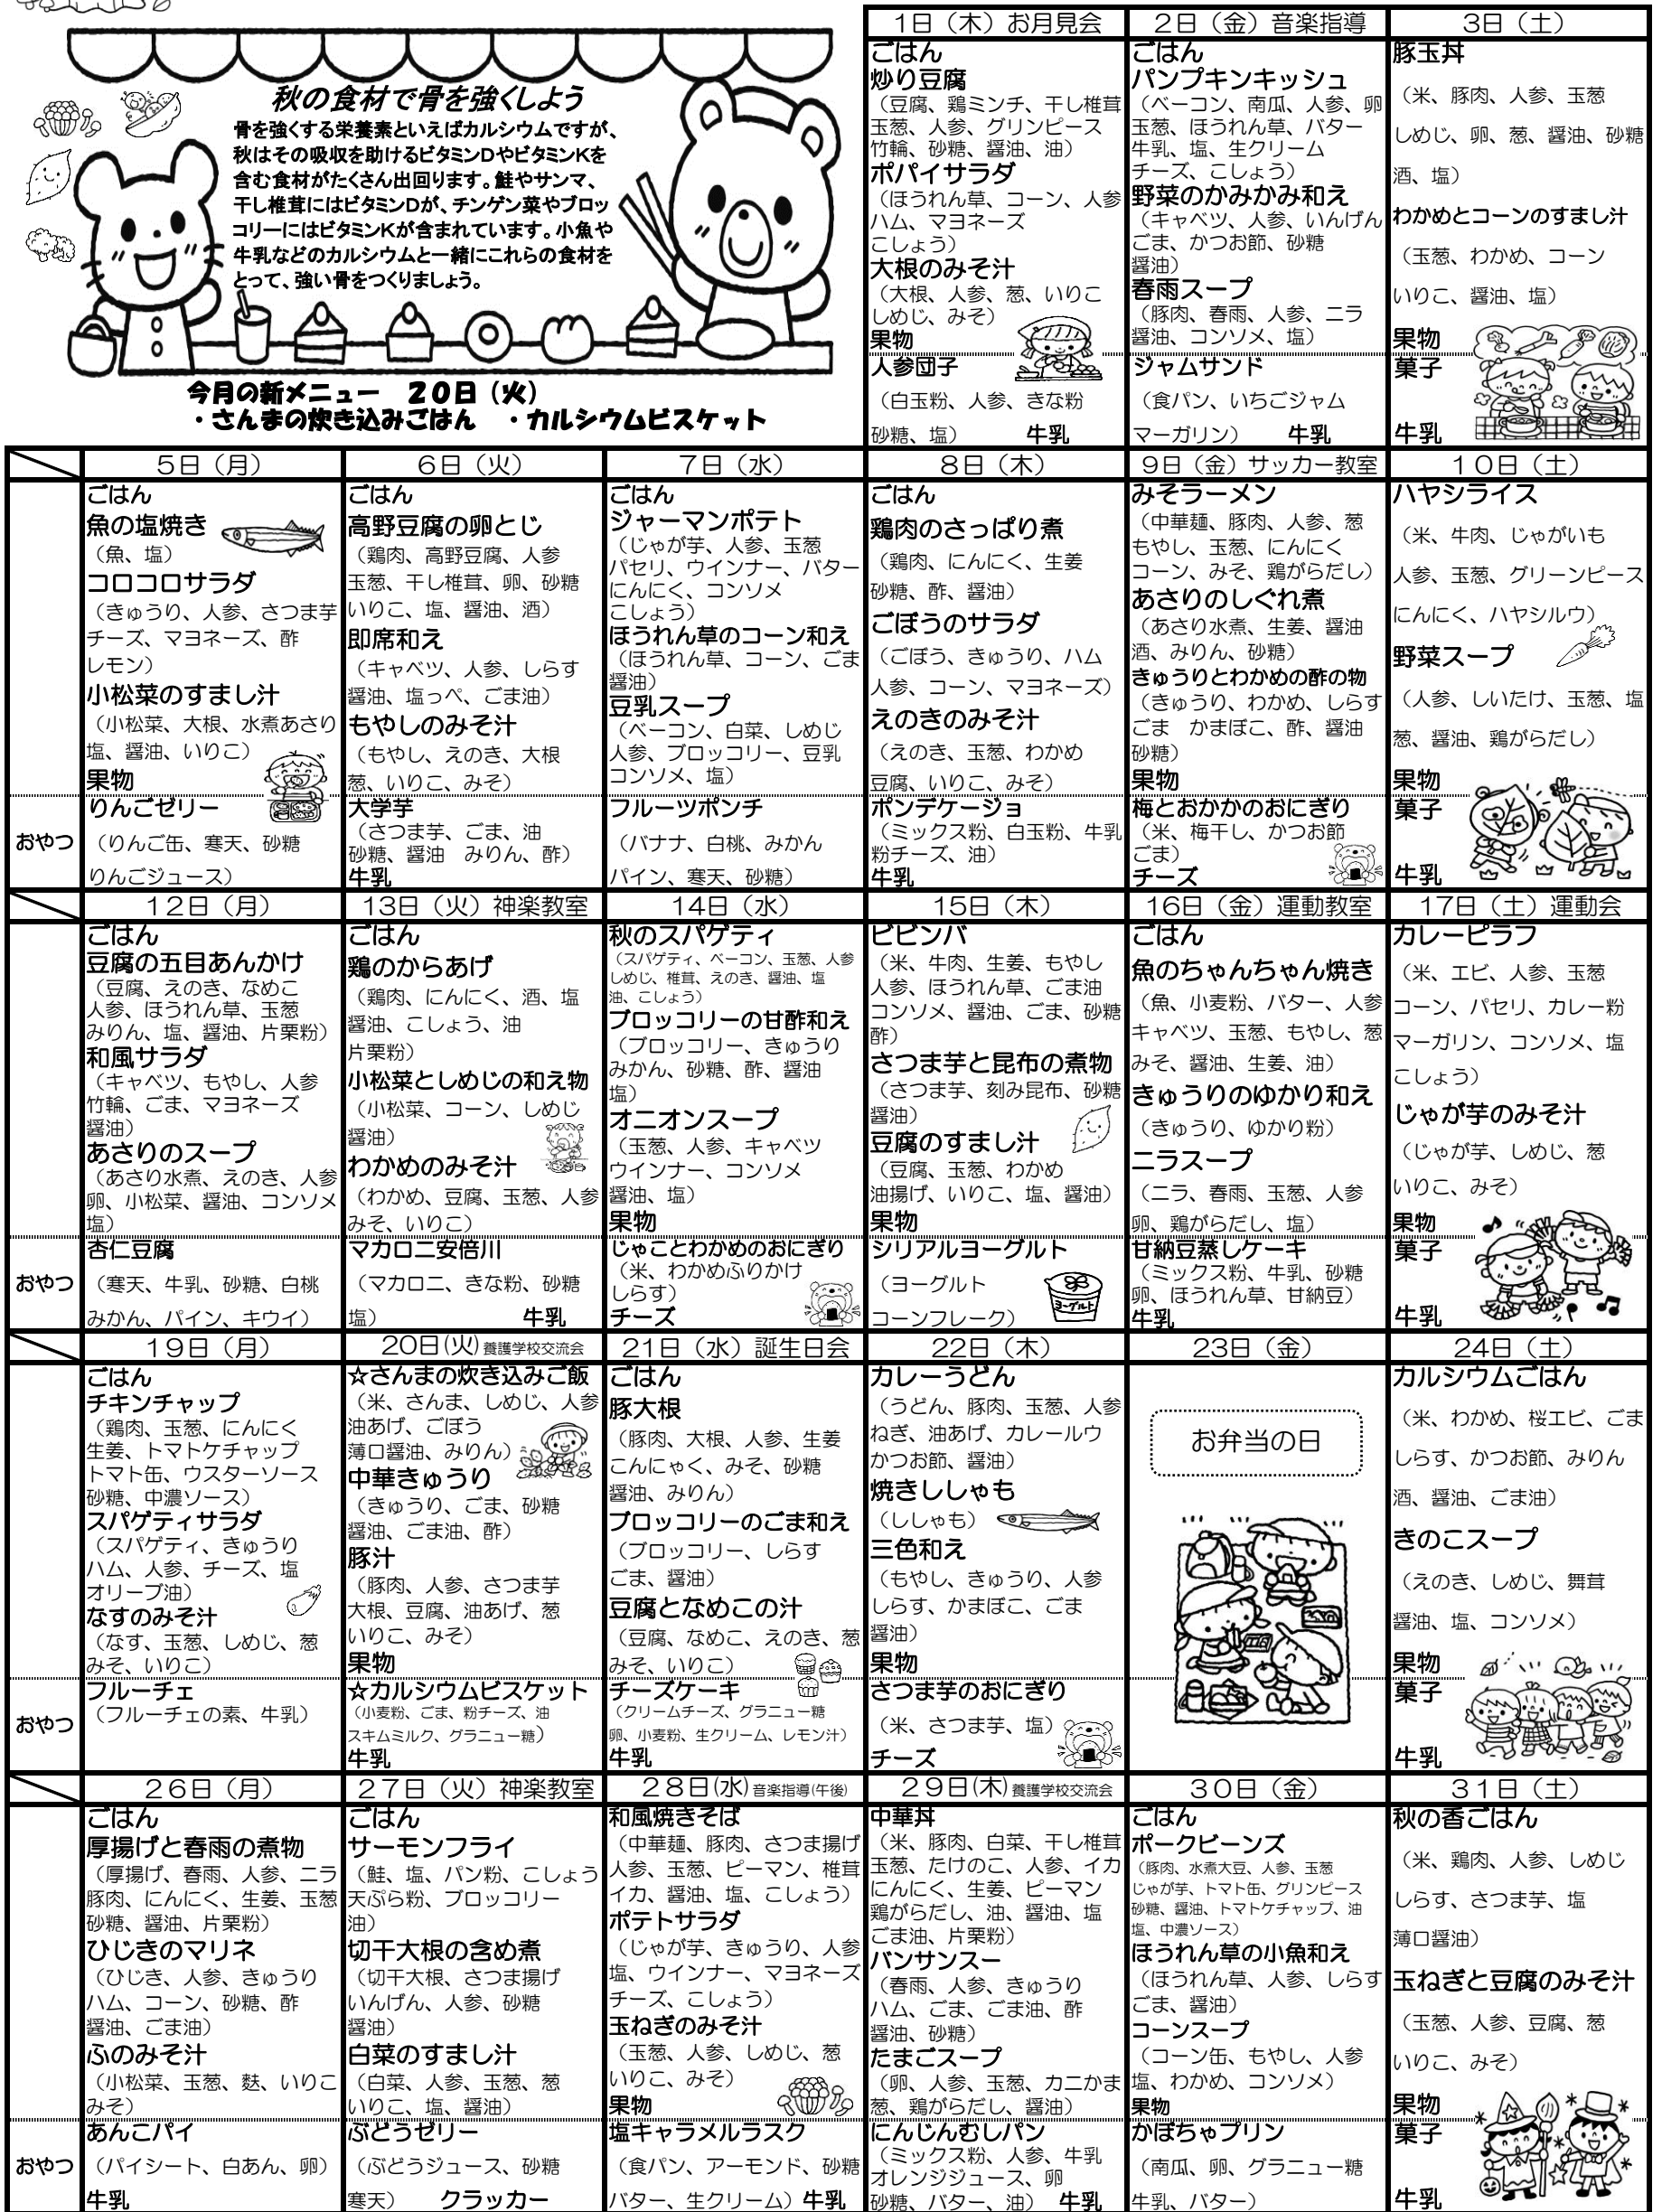 秋の食材で骨を強くしよう
骨を強くする栄養素といえばカルシウムですが、
秋はその吸収を助けるビタミンDやビタミンKを
含む食材がたくさん出回ります。鮭やサンマ、
干し椎茸にはビタミンDが、チンゲン菜やブロッ
コリーにはビタミンKが含まれています。小魚や
牛乳などのカルシウムと一緒にこれらの食材を
とって、強い骨をつくりましょう。
今月の新メニュー　20日（火）
・さんまの炊き込みごはん　・カルシウムビスケット
1日（木）お月見会
ごはん
炒り豆腐
（豆腐、鶏ミンチ、干し椎茸
玉葱、人参、グリンピース
竹輪、砂糖、醤油、油）
ポパイサラダ
（ほうれん草、コーン、人参
ハム、マヨネーズ
こしょう）
大根のみそ汁
（大根、人参、葱、いりこ
しめじ、みそ）
果物
人参団子
（白玉粉、人参、きな粉
砂糖、塩）　牛乳
2日（金）音楽指導
ごはん
パンプキンキッシュ
（ベーコン、南瓜、人参、卵
玉葱、ほうれん草、バター
牛乳、塩、生クリーム
チーズ、こしょう）
野菜のかみかみ和え
（キャベツ、人参、いんげん
ごま、かつお節、砂糖
醤油）
春雨スープ
（豚肉、春雨、人参、ニラ
醤油、コンソメ、塩）
ジャムサンド
（食パン、いちごジャム
マーガリン）　牛乳
3日（土）
豚玉丼
（米、豚肉、人参、玉葱
しめじ、卵、葱、醤油、砂糖
酒、塩）
わかめとコーンのすまし汁
（玉葱、わかめ、コーン
いりこ、醤油、塩）
果物
菓子
牛乳
5日（月）
ごはん
魚の塩焼き
（魚、塩）
コロコロサラダ
（きゅうり、人参、さつま芋
チーズ、マヨネーズ、酢
レモン）
小松菜のすまし汁
（小松菜、大根、水煮あさり
塩、醤油、いりこ）
果物
おやつ
りんごゼリー
（りんご缶、寒天、砂糖
りんごジュース）
6日（火）
ごはん
高野豆腐の卵とじ
（鶏肉、高野豆腐、人参
玉葱、干し椎茸、卵、砂糖
いりこ、塩、醤油、酒）
即席和え
（キャベツ、人参、しらす
醤油、塩っぺ、ごま油）
もやしのみそ汁
（もやし、えのき、大根
葱、いりこ、みそ）
大学芋
（さつま芋、ごま、油
砂糖、醤油　みりん、酢）
牛乳
7日（水）
ごはん
ジャーマンポテト
（じゃが芋、人参、玉葱
パセリ、ウインナー、バター
にんにく、コンソメ
こしょう）
ほうれん草のコーン和え
（ほうれん草、コーン、ごま
醤油）
豆乳スープ
（ベーコン、白菜、しめじ
人参、ブロッコリー、豆乳
コンソメ、塩）
フルーツポンチ
（バナナ、白桃、みかん
パイン、寒天、砂糖）
8日（木）
ごはん
鶏肉のさっぱり煮
（鶏肉、にんにく、生姜
砂糖、酢、醤油）
ごぼうのサラダ
（ごぼう、きゅうり、ハム
人参、コーン、マヨネーズ）
えのきのみそ汁
（えのき、玉葱、わかめ
豆腐、いりこ、みそ）
ポンデケージョ
（ミックス粉、白玉粉、牛乳
粉チーズ、油）
牛乳
9日（金）サッカー教室
みそラーメン
（中華麺、豚肉、人参、葱
もやし、玉葱、にんにく
コーン、みそ、鶏がらだし）
あさりのしぐれ煮
（あさり水煮、生姜、醤油
酒、みりん、砂糖）
きゅうりとわかめの酢の物
（きゅうり、わかめ、しらす
ごま　かまぼこ、酢、醤油
砂糖）
果物
梅とおかかのおにぎり
（米、梅干し、かつお節
ごま）
チーズ
10日（土）
ハヤシライス
（米、牛肉、じゃがいも
人参、玉葱、グリーンピース
にんにく、ハヤシルウ）
野菜スープ
（人参、しいたけ、玉葱、塩
葱、醤油、鶏がらだし）
果物
菓子
牛乳
12日（月）
ごはん
豆腐の五目あんかけ
（豆腐、えのき、なめこ
人参、ほうれん草、玉葱
みりん、塩、醤油、片栗粉）
和風サラダ
（キャベツ、もやし、人参
竹輪、ごま、マヨネーズ
醤油）
あさりのスープ
（あさり水煮、えのき、人参
卵、小松菜、醤油、コンソメ
塩）
おやつ
杏仁豆腐
（寒天、牛乳、砂糖、白桃
みかん、パイン、キウイ）
13日（火）神楽教室
ごはん
鶏のからあげ
（鶏肉、にんにく、酒、塩
醤油、こしょう、油
片栗粉）
小松菜としめじの和え物
（小松菜、コーン、しめじ
醤油）
わかめのみそ汁
（わかめ、豆腐、玉葱、人参
みそ、いりこ）
マカロニ安倍川
（マカロニ、きな粉、砂糖
塩）　牛乳
14日（水）
秋のスパゲティ
（スパゲティ、ベーコン、玉葱、人参
しめじ、椎茸、えのき、醤油、塩
油、こしょう）
ブロッコリーの甘酢和え
（ブロッコリー、きゅうり
みかん、砂糖、酢、醤油
塩）
オニオンスープ
（玉葱、人参、キャベツ
ウインナー、コンソメ
醤油、塩）
果物
じゃことわかめのおにぎり
（米、わかめふりかけ
しらす）
チーズ
15日（木）
ビビンバ
（米、牛肉、生姜、もやし
人参、ほうれん草、ごま油
コンソメ、醤油、ごま、砂糖
酢）
さつま芋と昆布の煮物
（さつま芋、刻み昆布、砂糖
醤油）
豆腐のすまし汁
（豆腐、玉葱、わかめ
油揚げ、いりこ、塩、醤油）
果物
シリアルヨーグルト
（ヨーグルト
コーンフレーク）
ヨーグルト
16日（金）運動教室
ごはん
魚のちゃんちゃん焼き
（魚、小麦粉、バター、人参
キャベツ、玉葱、もやし、葱
みそ、醤油、生姜、油）
きゅうりのゆかり和え
（きゅうり、ゆかり粉）
ニラスープ
（ニラ、春雨、玉葱、人参
卵、鶏がらだし、塩）
甘納豆蒸しケーキ
（ミックス粉、牛乳、砂糖
卵、ほうれん草、甘納豆）
牛乳
17日（土）運動会
カレーピラフ
（米、エビ、人参、玉葱
コーン、パセリ、カレー粉
マーガリン、コンソメ、塩
こしょう）
じゃが芋のみそ汁
（じゃが芋、しめじ、葱
いりこ、みそ）
果物
菓子
牛乳
19日（月）
ごはん
チキンチャップ
（鶏肉、玉葱、にんにく
生姜、トマトケチャップ
トマト缶、ウスターソース
砂糖、中濃ソース）
スパゲティサラダ
（スパゲティ、きゅうり
ハム、人参、チーズ、塩
オリーブ油）
なすのみそ汁
（なす、玉葱、しめじ、葱
みそ、いりこ）
おやつ
フルーチェ
（フルーチェの素、牛乳）
20日(火)養護学校交流会
☆さんまの炊き込みご飯
（米、さんま、しめじ、人参
油あげ、ごぼう
薄口醤油、みりん）
中華きゅうり
（きゅうり、ごま、砂糖
醤油、ごま油、酢）
豚汁
（豚肉、人参、さつま芋
大根、豆腐、油あげ、葱
いりこ、みそ）
果物
☆カルシウムビスケット
（小麦粉、ごま、粉チーズ、油
スキムミルク、グラニュー糖）
牛乳
21日（水）誕生日会
ごはん
豚大根
（豚肉、大根、人参、生姜
こんにゃく、みそ、砂糖
醤油、みりん）
ブロッコリーのごま和え
（ブロッコリー、しらす
ごま、醤油）
豆腐となめこの汁
（豆腐、なめこ、えのき、葱
みそ、いりこ）
チーズケーキ
（クリームチーズ、グラニュー糖
卵、小麦粉、生クリーム、レモン汁）
牛乳
22日（木）
カレーうどん
（うどん、豚肉、玉葱、人参
ねぎ、油あげ、カレールウ
かつお節、醤油）
焼きししゃも
（ししゃも）
三色和え
（もやし、きゅうり、人参
しらす、かまぼこ、ごま
醤油）
果物
さつま芋のおにぎり
（米、さつま芋、塩）
チーズ
23日（金）
お弁当の日
24日（土）
カルシウムごはん
（米、わかめ、桜エビ、ごま
しらす、かつお節、みりん
酒、醤油、ごま油）
きのこスープ
（えのき、しめじ、舞茸
醤油、塩、コンソメ）
果物
菓子
牛乳
26日（月）
ごはん
厚揚げと春雨の煮物
（厚揚げ、春雨、人参、ニラ
豚肉、にんにく、生姜、玉葱
砂糖、醤油、片栗粉）
ひじきのマリネ
（ひじき、人参、きゅうり
ハム、コーン、砂糖、酢
醤油、ごま油）
ふのみそ汁
（小松菜、玉葱、麩、いりこ
みそ）
おやつ
あんこパイ
（パイシート、白あん、卵）
牛乳
27日（火）神楽教室
ごはん
サーモンフライ
（鮭、塩、パン粉、こしょう
天ぷら粉、ブロッコリー
油）
切干大根の含め煮
（切干大根、さつま揚げ
いんげん、人参、砂糖
醤油）
白菜のすまし汁
（白菜、人参、玉葱、葱
いりこ、塩、醤油）
ぶどうゼリー
（ぶどうジュース、砂糖
寒天）　クラッカー
28日(水)音楽指導(午後)
和風焼きそば
（中華麺、豚肉、さつま揚げ
人参、玉葱、ピーマン、椎茸
イカ、醤油、塩、こしょう）
ポテトサラダ
（じゃが芋、きゅうり、人参
塩、ウインナー、マヨネーズ
チーズ、こしょう）
玉ねぎのみそ汁
（玉葱、人参、しめじ、葱
いりこ、みそ）
果物
塩キャラメルラスク
（食パン、アーモンド、砂糖
バター、生クリーム）牛乳
29日(木)養護学校交流会
中華丼
（米、豚肉、白菜、干し椎茸
玉葱、たけのこ、人参、イカ
にんにく、生姜、ピーマン
鶏がらだし、油、醤油、塩
ごま油、片栗粉）
バンサンスー
（春雨、人参、きゅうり
ハム、ごま、ごま油、酢
醤油、砂糖）
たまごスープ
（卵、人参、玉葱、カニかま
葱、鶏がらだし、醤油）
にんじんむしパン
（ミックス粉、人参、牛乳
オレンジジュース、卵
砂糖、バター、油）　牛乳
30日（金）
ごはん
ポークビーンズ
（豚肉、水煮大豆、人参、玉葱
じゃが芋、トマト缶、グリンピース
砂糖、醤油、トマトケチャップ、油
塩、中濃ソース）
ほうれん草の小魚和え
（ほうれん草、人参、しらす
ごま、醤油）
コーンスープ
（コーン缶、もやし、人参
塩、わかめ、コンソメ）
果物
かぼちゃプリン
（南瓜、卵、グラニュー糖
牛乳、バター）
31日（土）
秋の香ごはん
（米、鶏肉、人参、しめじ
しらす、さつま芋、塩
薄口醤油）
玉ねぎと豆腐のみそ汁
（玉葱、人参、豆腐、葱
いりこ、みそ）
果物
菓子
牛乳